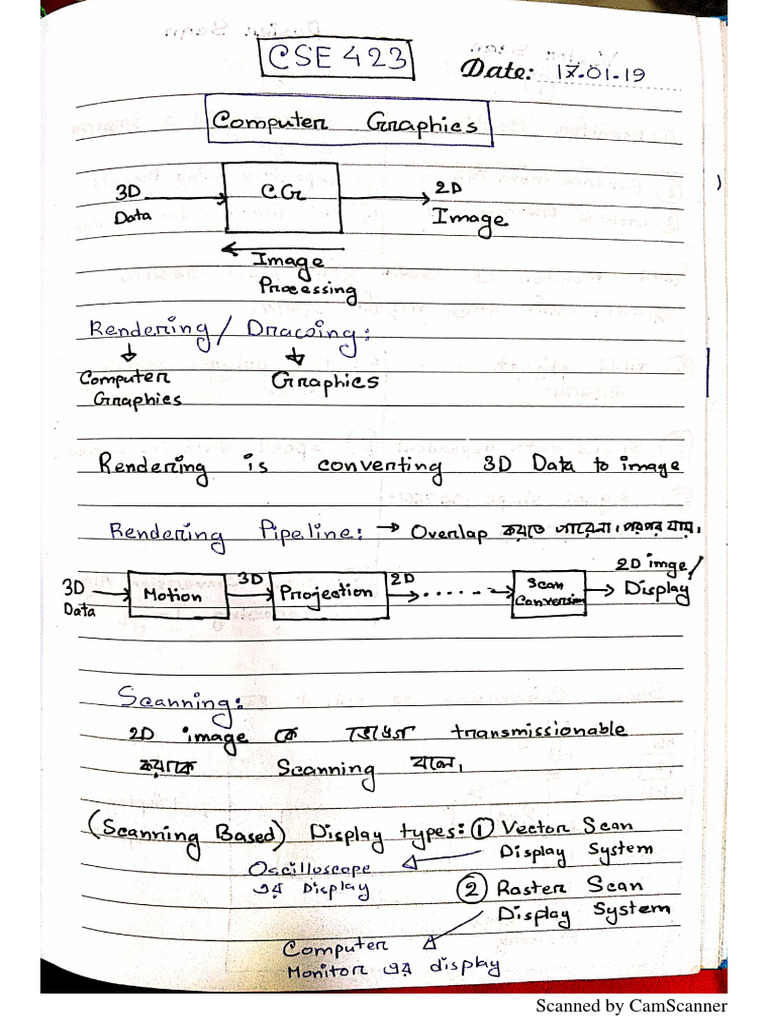 CSE 423
Date: 17.01.19
Computer Graphics
3D Data
C.G
2D Image
Image Processing
Rendering / Drawing:
Computer Graphics
Graphics
Rendering is converting 3D Data to image
Rendering Pipeline: → Overlap করতে পারেনা। পরপর যায়।
3D Data
Motion
3D
Projection
2D
Scan Conversion
2D imge/ Display
Scanning:
2D image কে transmissionable
করাকে Scanning বলে।
(Scanning Based) Display types: ① Vector Scan
Display System
Oscilloscope
এর Display
② Raster Scan
Display System
Computer
Monitor এর display
Scanned by CamScanner